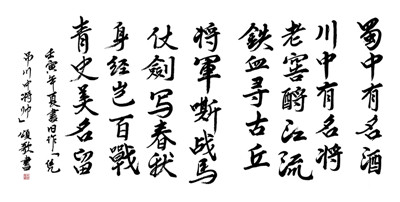 蜀中有名酒
川中有名将
老窖酹江流
鉄血寻古丘
将軍嘶战馬
仗劍写春秋
身经岂百戰
青史美名留
壬寅年夏書旧作「凭
吊川中将帅」頌歌書